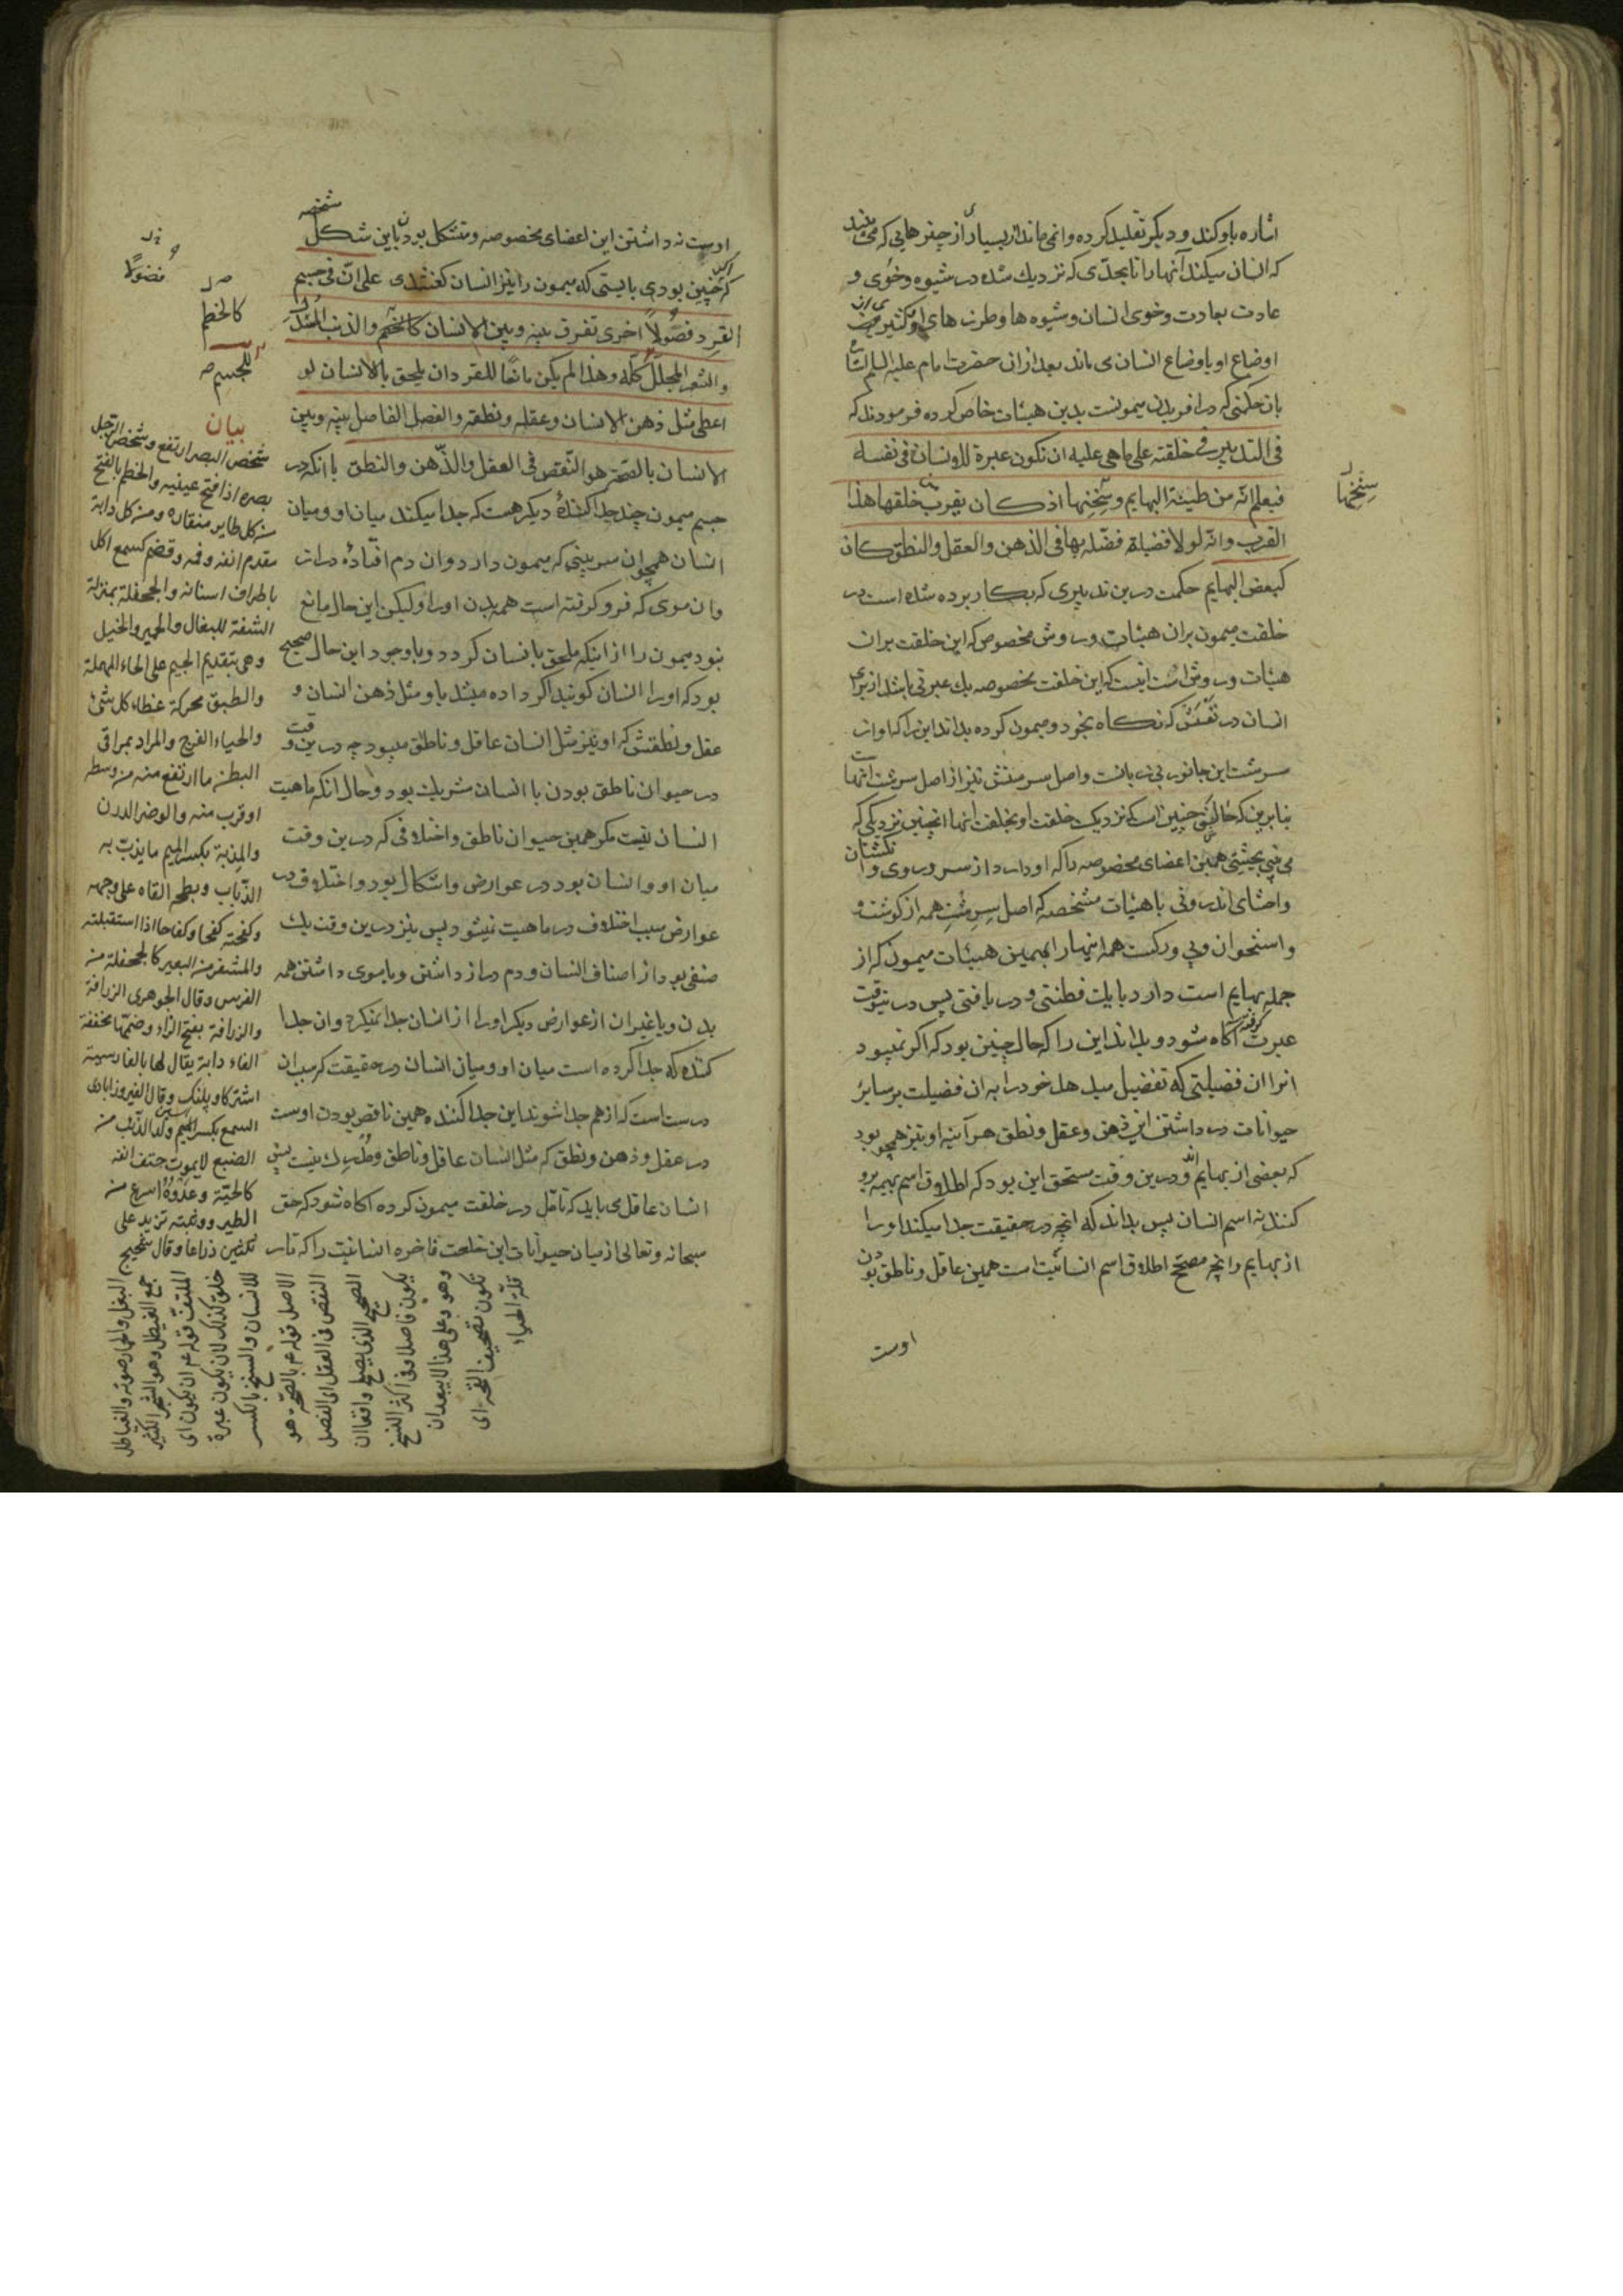 اشاره باو کند و دیگر تقلید کرده وا نمی ماند از بسیاری از چیزهایی که می بیند
که انسان میکند آنها را تا بحدی که نزدیک شده در شیوه و خوی و
عادت بعادت و خوی انسان و شیوه ها و طرزهای او و کثیری از
اوضاع او باوضاع انسان می ماند بعد از ان حضرت امام علیه السلام اشاره
بان حکمتی که در افریدن میمونست بدین هیئات خاص کرده فرمودند که
فی التدبیر فی خلقته علی ما هی علیه ان تکون عبرة للانسان فی نفسه
فیعلم انّه من طینة البهایم و سنخها اذ کان یقرب خلقها هذا
القرب و انّه لولا فضیلة فضّله بها فی الذهن و العقل و النطق کان
کبعض البهایم حکمت درین تدبیری که بکار برده شده است در
خلقت میمون بران هیئات و روش مخصوص که این خلقت بران
هیئات و روش است اینست که این خلقت مخصوصه یک عبرتی باشد از برای
انسان در نفسش که نگاه بخود و میمون کرده بداند این را که او از
سرشت این جانور بی زبانست و اصل سرمنشش نیز از اصل سرشت انها
بنابرین که حالش چنین است که نزدیک خلقت او بخلقت انها اینچنین نزدیکی که
می بینی بحیثیتی همین اعضای مخصوصه را که او دارد از سر و روی و انگشتان
و احشای اندرونی با هیئات مشخصه که اصل سرشت همه از گوشت و
و استخوان و پی و رگست همه اینها را بهمین هیئات میمون که از
جمله بهایم است دارد با یک فطنتی و دریافتی پس درینوقت
عبرت گرفته اگاه شود و بداند این را که حال چنین بود که اگر نمیبود
انرا ان فضیلتی که تفضیل میدهد خود را به ان فضیلت بر سایر
حیوانات در داشتن این ذهن و عقل و نطق هر آینه او نیز همچو بود
که بعضی از بهایم و درین وقت مستحق این بود که اطلاق اسم بهیمه برو
کنند نه اسم انسان پس بداند که انچه در حقیقت جدا میکند او را
از بهایم و انچه مصحح اطلاق اسم انسانیت است همین عاقل و ناطق بودن
اوست
سنخها
اوست نه داشتن این اعضای مخصوصه و متشکل بودن باین شکل مشخصه
که اگر چنین بودی بایستی که میمون را نیز انسان گفتندی علی انّ فی جسم
القرد فصولاً اخری تفرق بینه و بین الانسان کالخطم و الذنب المسدل
و الشعر المجلّل کلّه و هذا لم یکن مانعًا للقرد ان یلحق بالانسان لو
اعطی مثل ذهن الانسان و عقله و نطقه و الفصل الفاصل بینه و بین
الانسان بالصّحّة هو النّقص فی العقل و الذّهن و النطق با انکه در
جسم میمون چند جدا کنندهٔ دیگر هست که جدا میکند میان او و میان
انسان همچو ان سر بینی که میمون دارد و ان دم افتادهٔ دراز
و ان موی که فرو گرفته است همه بدن او را و لیکن این حال مانع
نبود میمون را از اینکه ملحق بانسان گردد و با وجود این حال صحیح
بود که او را انسان گویند اگر داده میشد باو مثل ذهن انسان و
عقل و نطقش که او نیز مثل انسان عاقل و ناطق میبود چه درین وقت
در حیوان ناطق بودن با انسان شریک بود و حال انکه ماهیت
انسان نیست مگر همین حیوان ناطق و اختلافی که درین وقت
میان او و انسان بود در عوارض و اشکال بود و اختلاف در
عوارض سبب اختلاف در ماهیت نمیشود پس نیز درین وقت یک
صنفی بود از اصناف انسان و دم دراز داشتن و یا موی داشتن همه
بدن و یا غیر ان از عوارض دیگر او را از انسان جدا نمیکرد و ان جدا
کننده که جدا کرده است میان او و میان انسان در حقیقت که سبب ان
درست است که از هم جدا شوند این جدا کننده همین ناقص بودن اوست
در عقل و ذهن و نطق که مثل انسان عاقل و ناطق و مدرک نیست پس
انسان عاقل می باید که تامّل در خلقت میمون کرده اگاه شود که حق
سبحانه و تعالی از میان حیوانات این خلعت فاخره انسانیت را که تار
فضولاً
کالخطم
للجسم
بیان
شخص البصر ارتفع و شخص الرجل
بصره اذا فتح عینیه و الخطم بالفتح
من کل طایر منقاره و من کل دابة
مقدم انفه و فمه و قضم کسمع اکل
باطراف اسنانه و الجحفلة بمنزلة
الشفة للبغال و الحمیر و الخیل
و هی بتقدیم الجیم علی الحاء المهملة
و الطبق محرکة غطاء کل شئ
و الحیاء الفرج و المراد بمراقی
البطن ما ارتفع منه من وسطه
او قرب منه و الوضر الدرن
و المذبة بکسر المیم ما یذبّ به
الذّباب و بطحه القاه علی وجهه
و کفحته کفحا و کفاحا اذا استقبلته
و المشفر من البعیر کالجحفلة من
الفرس و قال الجوهری الزرافة
و الزرافة بفتح الزاء و ضمّها مخففة
الفاء دابة یقال لها بالفارسیة
اشتر کاو پلنک و قال الفیروزابادی
السمع بکسر السین ولد الذّئب من
الضبع لا یموت حتف انفه
کالحیّة و عدوه اسرع من
الطیر و وثبته تزید علی
ثلثین ذراعا و قال شحیج
البغل و الحمار صوته و الغیاطل
جمع الغیطل و هو الشجر الکثیر
الملتفّ قوله ع ان یکون ای
خلق کذلک لان یکون عبرة
للانسان و السنخ بالکسر
الاصل قوله ع بالصّحّة هو
النقص فی العقل ای الفصل
الصحیح الذی یصلح واقعا ان
یکون فاصلا و فی اکثر النسخ
و هو و علی هذا لا یبعد ان
تکون تصحیف القحّة ای
قلّة الحیاء